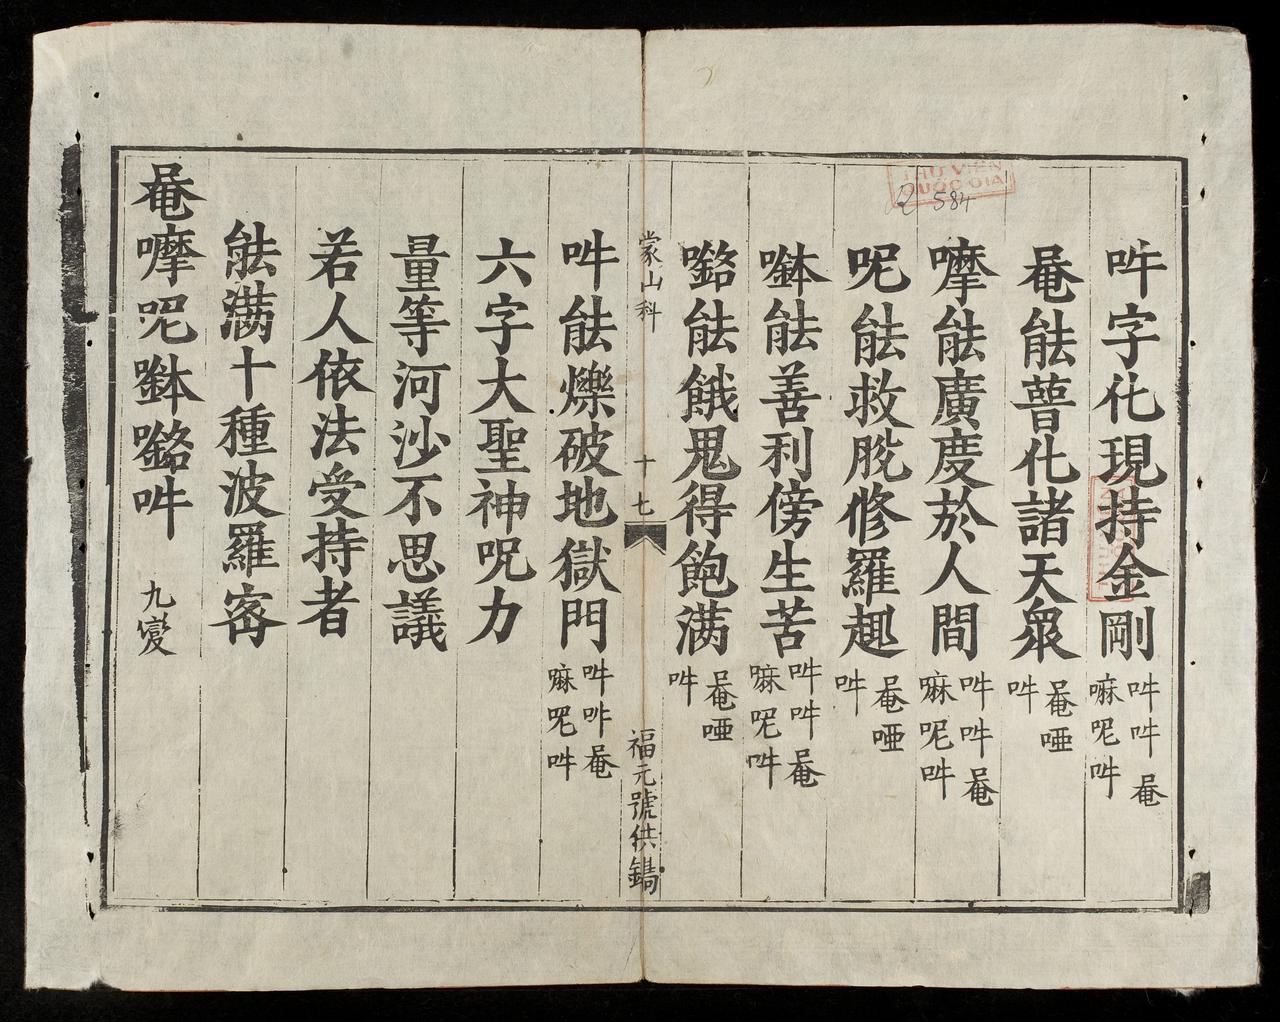 吽字化現持金剛 吽吽𡄣嘛呢吽
𡄣能普化諸天眾 𡄣啞吽
嚤能廣度於人間 吽吽𡄣嘛呢吽
呢能救脫修羅趣 𡄣啞吽
𠷈能善利傍生苦 吽吽𡄣嘛呢吽
𡀩能餓鬼得飽滿 𡄣啞吽
蒙山科
十七
福元號供鐫
吽能爍破地獄門 吽吽𡄣嘛呢吽
六字大聖神呪力
量等河沙不思議
若人依法受持者
能滿十種波羅密
𡄣嚤呢𠷈𡀩吽 九變
THƯ VIỆN
QUỐC GIA
R 584